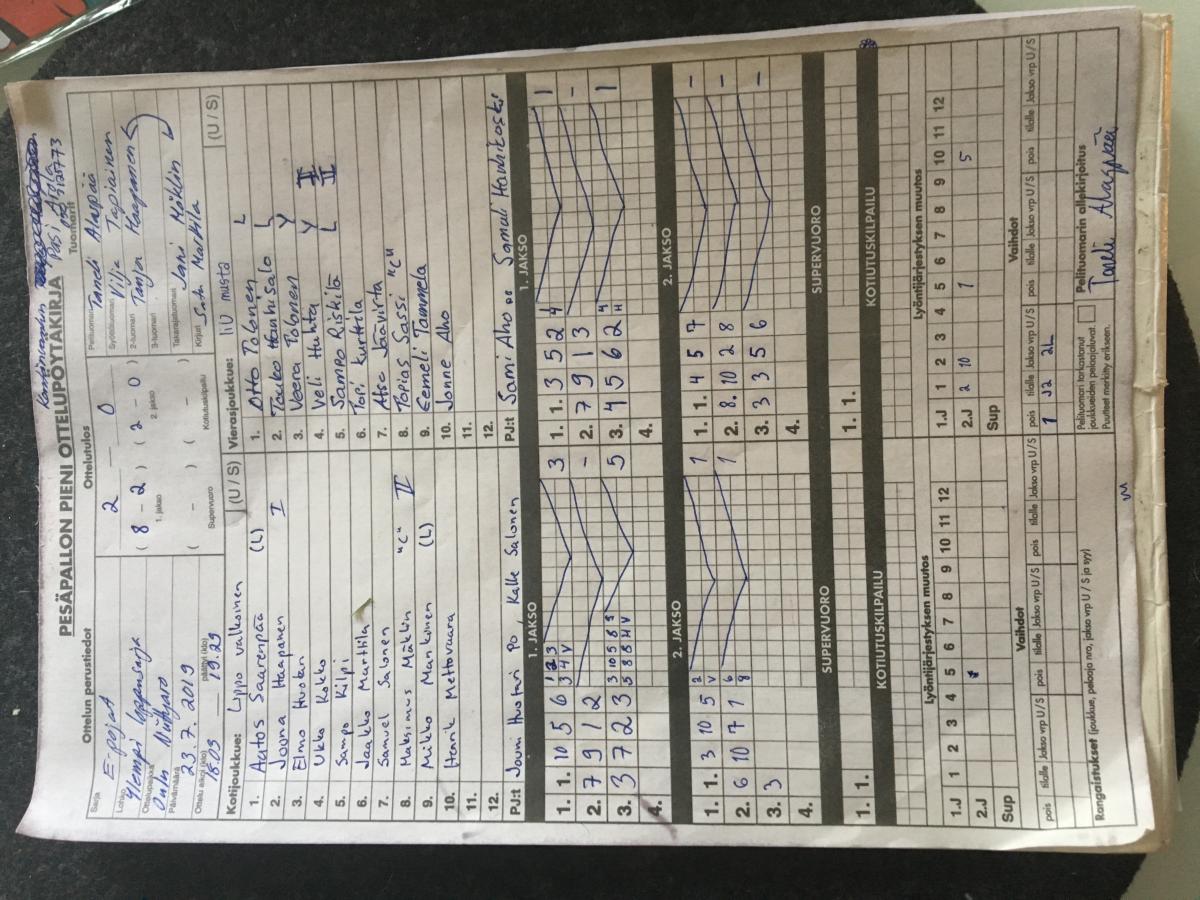 PESÄPALLON PIENI OTTELUPÖYTÄKIRJA
Pasi Ahola
Ottelun perustiedot
Sarja
E-pojat
Lohko
Ylempi loppusarja
Ottelupaikka
Oulu
Päivämäärä
23.7.2019
Ottelu alkoi (klo) 18.05 päättyi (klo) 19.29
Ottelutulos
2 — 0
( 8 - 2 ) ( 2 - 0 )
1. jakso 2. jakso
( - ) ( - )
Supervuoro Kotiutuskilpailu
Tuomarit
Pelituomari Taneli Alapää
Syöttötuomari Vilja Tapiainen
2-tuomari Tanja Haapanen
3-tuomari
Takarajatuomari Jani Mäklin
Kirjuri Satu Marttila
Kotijoukkue: Lippo valkoinen (U / S)
1. Aatos Saarenpää (L)
2. Joona Haapanen I
3. Elmo Huotari
4. Ukko Kokko
5. Sampo Kilpi
6. Jaakko Marttila
7. Samuel Salonen
8. Maksimus Mäklin "C" II
9. Mikko Mankonen (L)
10. Henrik Mettovaara
11.
12.
PJ:t Jouni Huotari PO, Kalle Salonen
Vierasjoukkue: IiU musta (U / S)
1. Otto Polonen L
2. Tauko Hanhisalo L
3. Veera Polonen Y
4. Veli Huhta Y
5. Sampo Riskilä L
6. Topi Kurttila
7. Atso Jäävirta
8. Topias Sassi "C"
9. Eemeli Tammela
10. Jonne Aho
11.
12.
PJ:t Sami Aho Samuli Hanhikoski
1. JAKSO
1. 1. 10 5 6 3
2. 7 9 1 2 -
3. 3 7 2 3 5
4.
1. JAKSO
1. 1. 3 5 2 4 1
2. 7 9 1 3 -
3. 4 5 6 2 4 1
4.
2. JAKSO
1. 1. 3 10 5 1
2. 6 10 7 1 1
3. 3
4.
2. JAKSO
1. 1. 4 5 7 -
2. 8. 10 2 8 -
3. 3 3 5 6 -
4.
SUPERVUORO
1. 1.
SUPERVUORO
1.
KOTIUTUSKILPAILU
KOTIUTUSKILPAILU
Lyöntijärjestyksen muutos
1 2 3 4 5 6 7 8 9 10 11 12
1.J
2.J
Sup
Lyöntijärjestyksen muutos
1 2 3 4 5 6 7 8 9 10 11 12
1.J
2.J 2 10 1 5
Sup
Vaihdot
pois tilalle Jakso vrp U / S pois tilalle Jakso vrp U / S pois tilalle Jakso vrp U / S
Vaihdot
pois tilalle Jakso vrp U / S pois tilalle Jakso vrp U / S pois tilalle Jakso vrp U / S
1 12 2L
Rangaistukset (joukkue, pelaaja nro, jakso vrp U / S ja syy)
Pelituomari tarkastanut
joukkueiden pelaajaluvat
Puutteet merkitty erikseen.
Pelituomarin allekirjoitus
Taneli Alapää